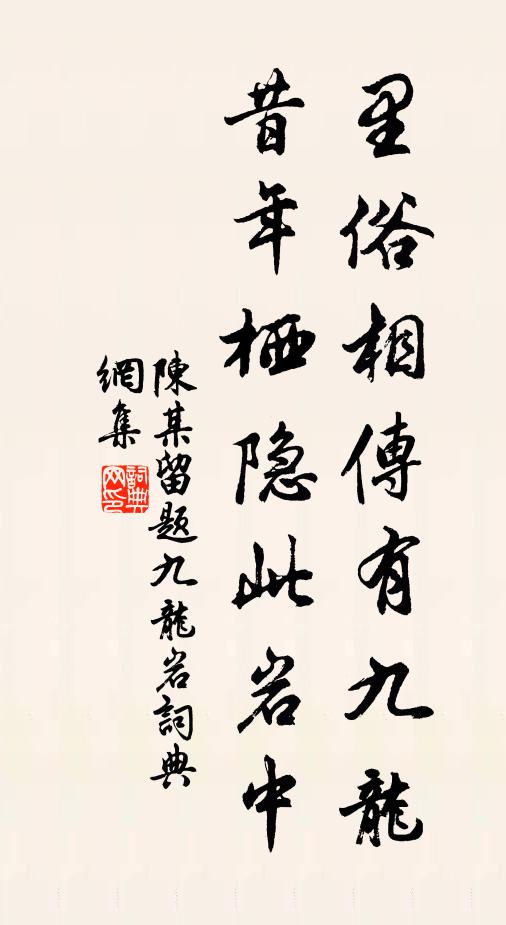 里俗相傳有九龍
昔年栖隐此岩中
陳某留題九龍岩詞典
網集
詞典网印